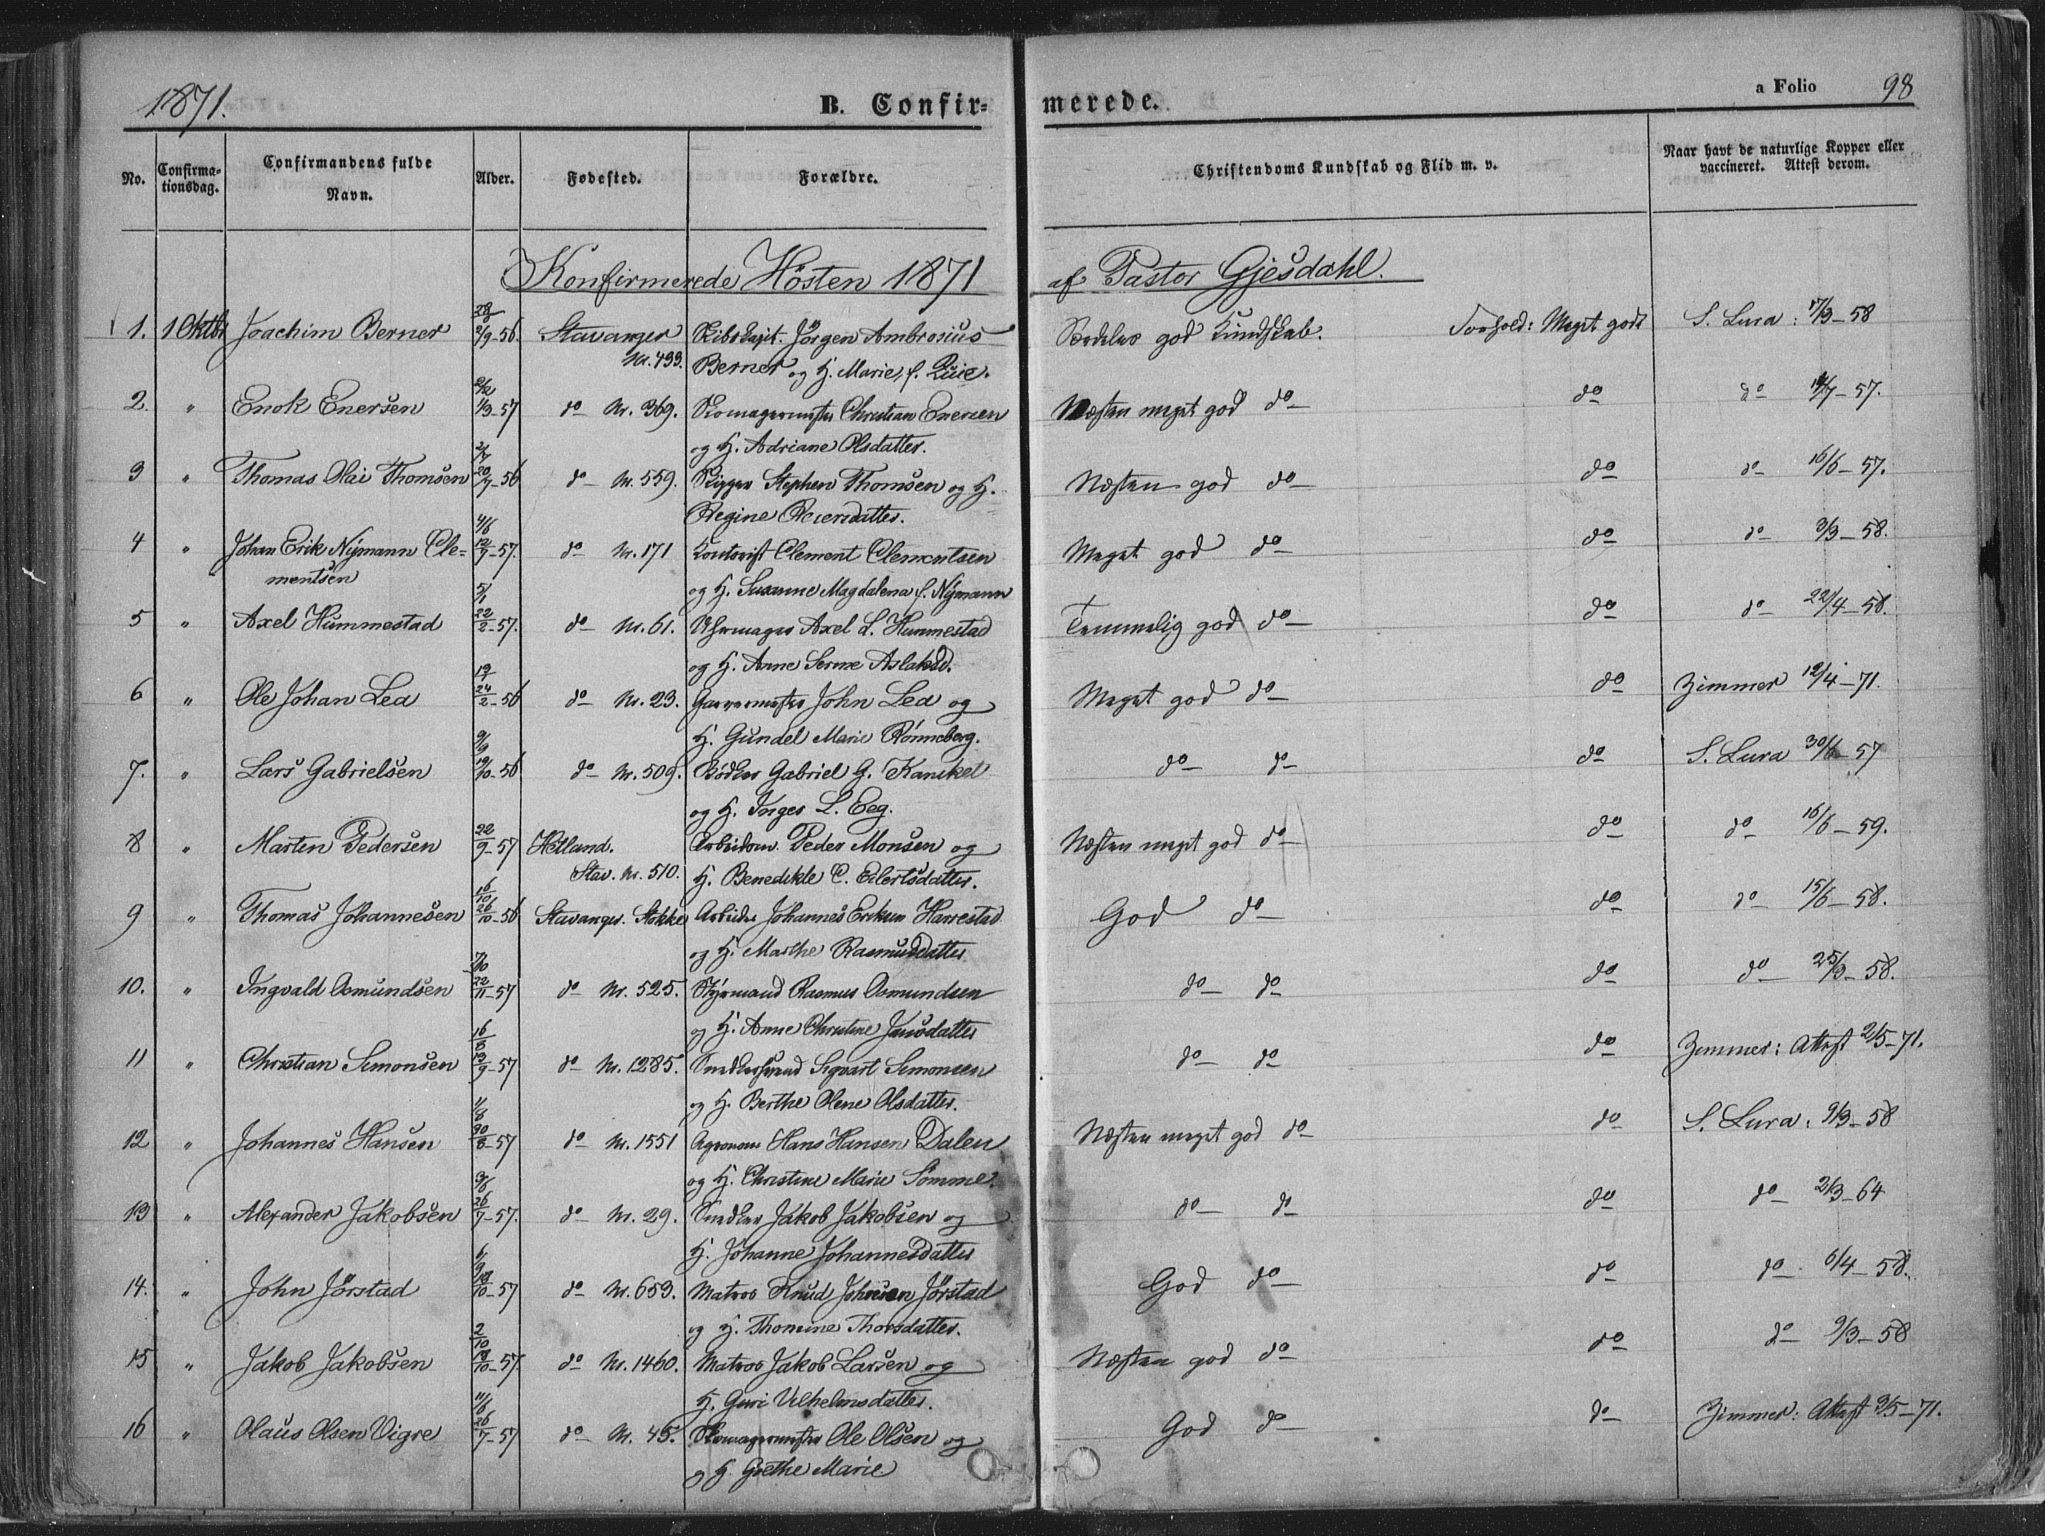 1871.
B. Confir-
merede.
a Folio 98
No.
Confirma-
tionsdag.
Confirmandens fulde
Navn.
Alder.
Fødested.
Forældre.
Christendoms Kundskab og Flid m. v.
Naar havt de naturlige Kopper eller
vaccineret. Attest derom.
Konfirmerede Hösten 1871 af Pastor Gjesdahl.
28/8
1. 1 Oktbr Joachim Berner 2/9-56. Stavanger Skibskapt. Jörgen Ambrosius Særdeles god Kundskab. Forhold: Meget godt S. Lura: 17/3-58
Nr. 433. Berner og H. Marie, f. Quie.
2/12
2. " Enok Enersen 1/3-57 do Nr. 369. Skomagermester Christian Enersen Næsten meget god do do do 14/7-57.
og H. Adriane Olsdatter.
2/7
3 " Thomas Olai Thomsen 20/7-56 do Nr. 559. Skipper Stephen Thomsen og H. Næsten god do do do 16/6-57.
Regine Reiersdatter.
4/6
4 " Johan Erik Nijmann Cle- 12/7-57. do Nr. 171 Kontorist Clement Clementsen Meget god do do do 3/3-58.
mentsen og H. Susanne Magdalena f. Nijmann
5/1
5 " Axel Hummestad 22/2-57. do Nr. 61. Uhrmager Axel L. Hummestad Temmelig god do do do 22/4-58.
og H. Anne Serine Aslaksd.
6 " Ole Johan Lea 24/2-56 do Nr. 23. Garvermester John Lea og Meget god do do Zimmer 12/4-71.
H. Gundel Marie Rönneberg.
9/9
7. " Lars Gabrielsen 19/10-56 do Nr. 509. Bødker Gabriel G. Kanikel do do do S. Lura 30/6-57
og H. Inger L. Eeg.
8 " Marten Pedersen 22/9-57 Hetland. Arbeidsm. Peder Monsen og Næsten meget god do do do 16/6-59.
Stav. Nr. 510. H. Benedikte C. Eilertsdatter.
16/10
9 " Thomas Johannesen 26/10-56 Stavanger. Stokke Arbeider Johannes Eriksen Harrestad God do do do 15/6-58.
og H. Marthe Rasmusdatter
7/10
10. " Ingvald Osmundsen 22/11-57 do Nr. 525. Styrmand Rasmus Osmundsen do do do do 25/3-58.
og H. Anne Christine Jansdatter
16/8
11 " Christian Simonsen 13/9-57 do Nr. 1285. Snedkersvend Sigvart Simonsen do do do Zimmer: Attest 2/5-71.
og H. Berthe Olene Olsdatter.
1/8
12 " Johannes Hansen 30/8-57 do Nr. 1551 Agronom Hans Hansen Dalen Næsten meget god do do S. Lura: 9/3-58
og H. Christine Marie Sömme.
3/6
13 " Alexander Jakobsen 26/7-57. do Nr. 29. Snedker Jakob Jakobsen og do do do do 2/3-64
H. Johanne Johannesdatter
6/9
14. " John Jörstad 18/10-57 do Nr. 653. Matros Knud Johnsen Jörstad God do do do 6/4-58.
og H. Thomine Thorsdatter.
2/10
15 " Jakob Jakobsen 18/10-57 do Nr. 1460. Matros Jakob Larsen og Næsten god do do do 9/3-58
H. Guri Vilhelmsdatter.
11/6
16 " Olaus Olsen Vigre 26/7-57 do Nr. 45. Skomagermester Ole Olsen og God do do Zimmer: Attest 3/5-71.
og H. Grethe Marie